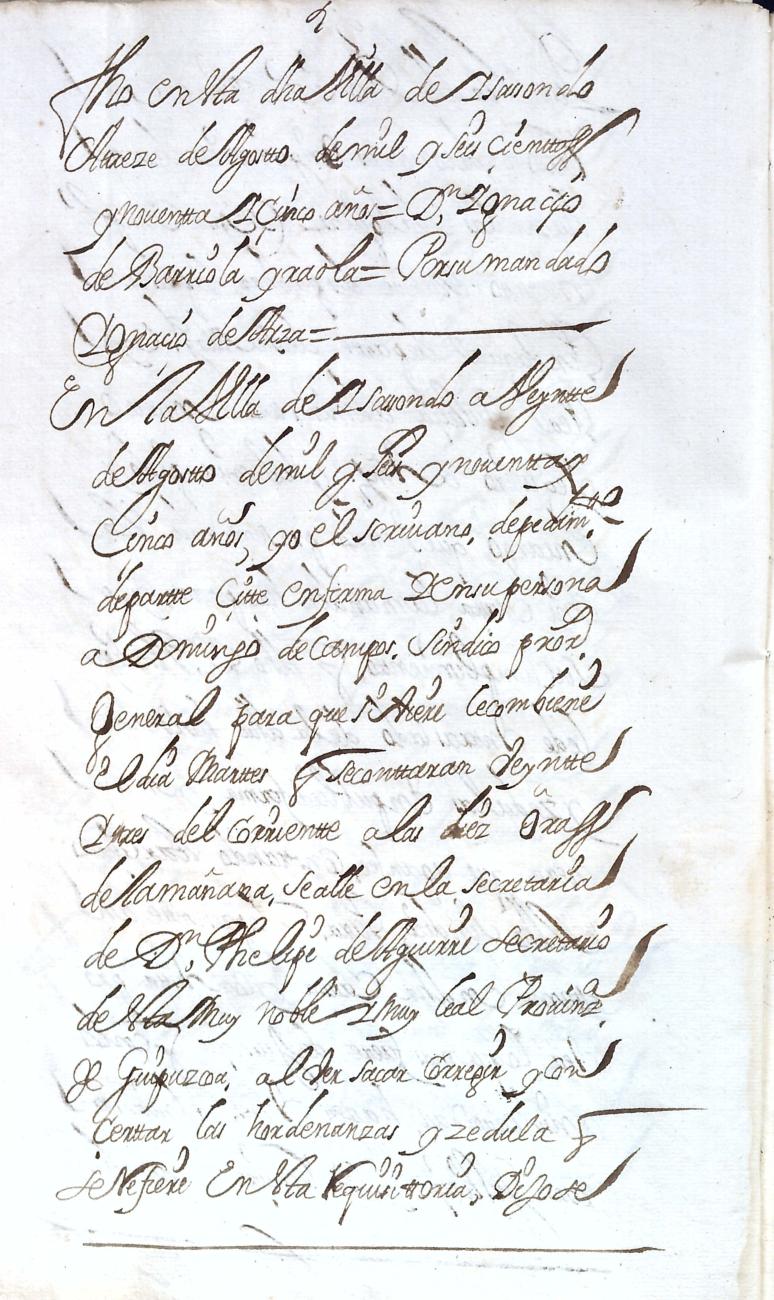 fho en esta dha Villa de Isasondo
Atreze de Agostto de mil y seis cienttos
y nouentta Y Cinco años = Dn. Ygnacio
de Barriola yraola = Por su mandado
Ygnacio de Arza =
En la Villa de Isasondo a Veyntte
de Agostto de mil y seis y nouentta y
Cinco años, yo el scriuano, de pedimto
de partte Çitte en forma Y en su persona
a Domingo de Campos. Sindico pror
General para que si Viere le combiene
el dia Marttes q seconttaran Veyntte
Y tres del Corrientte a las diez oras
de la mañana, se alle en la secretaria
de Dn. Phelipe de Aguirre secretario
de esta Muy noble Y Muy leal Prouinza
de Guipuzcoa, al Ver sacar Corregir y Con
Certtar las hordenanzas y zedula q
se Refiere En esta Requisittoria, Dijo se